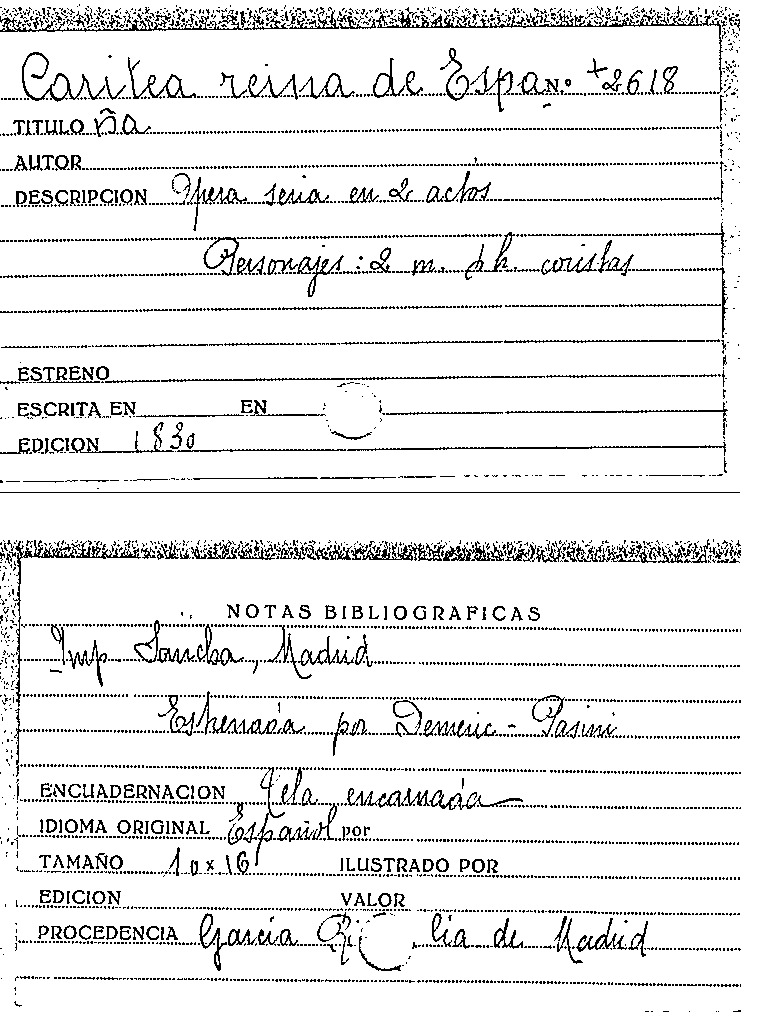 Caritea reina de Espa N.º +2618
TITULO ña
AUTOR
DESCRIPCION Opera seria en 2 actos
Personajes: 2 m. h. coristas
ESTRENO
ESCRITA EN EN
EDICION 1830
NOTAS BIBLIOGRAFICAS
Imp Sancha, Madrid
Estrenada por Demeric - Pasini
ENCUADERNACION Tela encarnada
IDIOMA ORIGINAL Español por
TAMAÑO 10 x 16 ILUSTRADO POR
EDICION VALOR
PROCEDENCIA García lia de Madrid